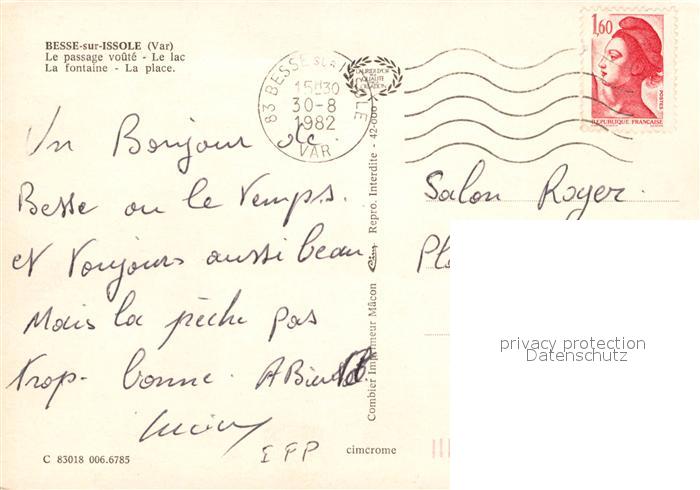 BESSE-sur-ISSOLE (Var)
Le passage voûté - Le lac
La fontaine - La place.
83 BESSE SUR ISSOLE
15H30
30-8
1982
VAR
LAURIER D'OR
QUALITÉ
1,60
POSTES
REPUBLIQUE FRANÇAISE
Un Bonjour de
Besse ou le temps
et toujours aussi beau
Mais la pêche pas
trop bonne. A Bientôt.
Lucien
EPP
Combier Imprimeur Mâcon Cim Repro. Interdite - 42-000
Salon Royer
privacy protection
Datenschutz
C 83018 006.6785
cimcrome